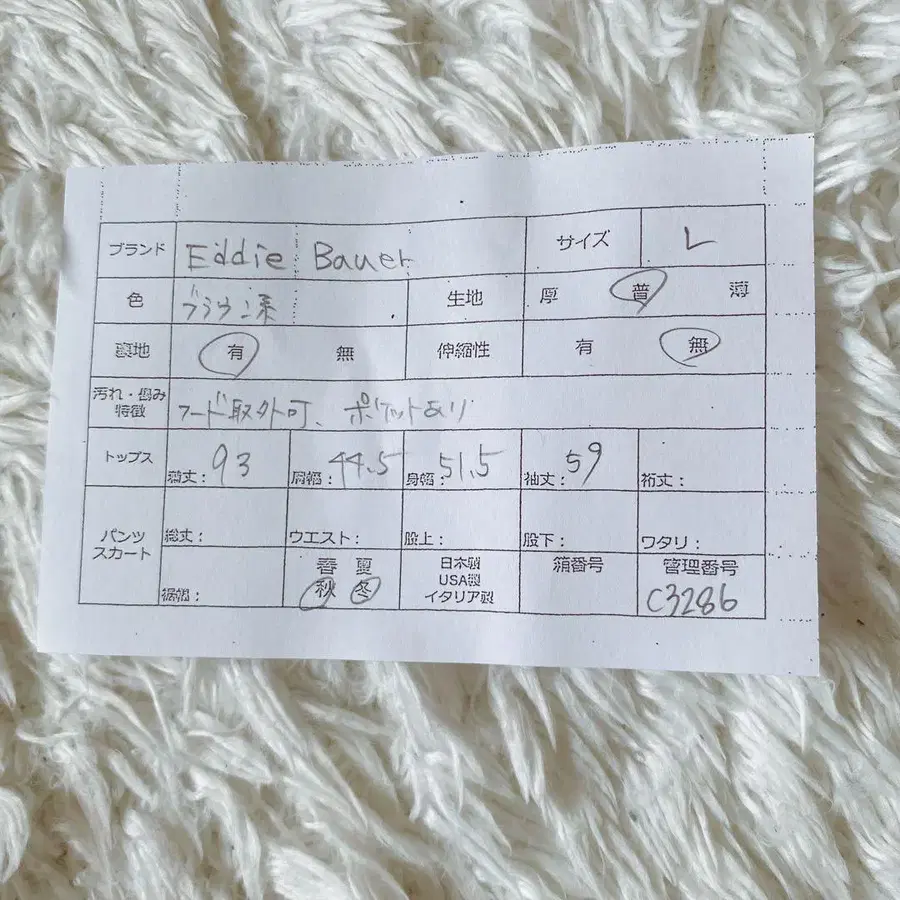 ブランド Eddie Bauer サイズ L
色 ブラウン系 生地 厚 普 薄
裏地 有 無 伸縮性 有 無
汚れ・傷み
特徴 フード取外可、ポケットあり
トップス 着丈: 93 肩幅: 44.5 身幅: 51.5 袖丈: 59 裄丈:
パンツ
スカート
総丈: ウエスト: 股上: 股下: ワタリ:
裾幅:
春 夏
秋 冬
日本製
USA製
イタリア製
箱番号
管理番号
C3286